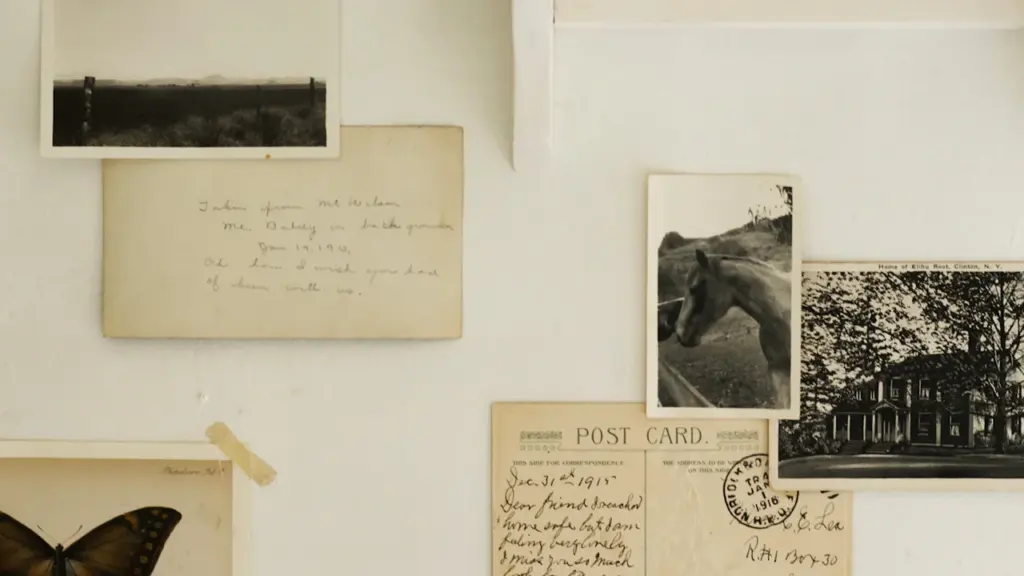 Taken from Mt Wilson
Mt. Baldy in back ground
Jan 19, 191
Oh how I wish you had
of been with us.
Home of Elihu Root, Clinton, N. Y.
POST CARD.
THIS SIDE FOR CORRESPONDENCE
THE ADDRESS TO BE
ON THIS SIDE
Dec. 31st 1915
Dear friend I reached
home safe but am
feeling very lonely
I miss you so much
TR
JAN
1
1916
C. E. Lea
R. # 1 Box 30